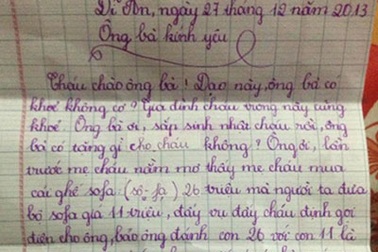 Dĩ An, ngày 27 tháng 12 năm 2013
Ông bà kính yêu
Cháu chào ông bà ! Dạo này, ông bà có
khoẻ không cơ ? Gia đình cháu trong này cũng
khoẻ. Ông bà ơi, sắp sinh nhật cháu rồi, ông
bà có tặng gì cho cháu không ? Ông ơi, lần
trước mẹ cháu nằm mơ thấy mẹ cháu mua
cái ghế sofa (sô-fa) 26 triệu mà người ta đưa
bộ sofa giá 11 triệu, đấy vụ đấy cháu định gọi
điện cho ông, bảo ông đánh con 26 với con 11 là